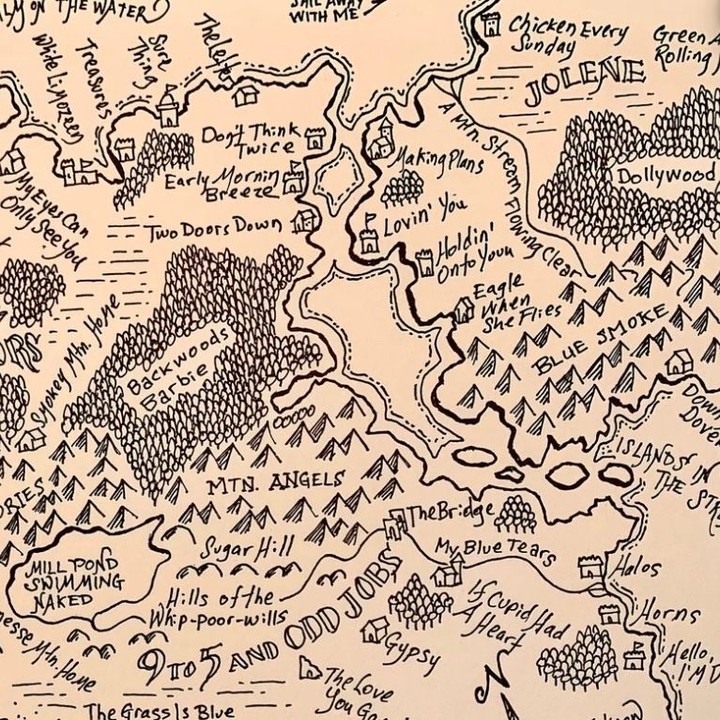 ON THE WATER
SAIL AWAY
WITH ME
Chicken Every
Sunday
Green
Rolling
JOLENE
White Limozeen
Treasures
Sure
Thing
The Letter
A Mtn. Stream Flowing Clear
Don't Think
Twice
Making Plans
Dollywood
Early Morning
Breeze
My Eyes Can
Only See You
Two Doors Down
Lovin' You
Holdin'
Onto You
Eagle
When
She Flies
BLUE SMOKE
Smokey Mtn. Home
Backwoods
Barbie
Down
Dover
ISLANDS IN
THE STR
MTN. ANGELS
ORIES
The Bridge
Sugar Hill
My Blue Tears
MILL POND
SWIMMING
NAKED
Halos
Hills of the
Whip-poor-wills
If Cupid Had
A Heart
Horns
9 TO 5 AND ODD JOBS
Gypsy
Hello,
I'M D
nessee Mtn. Home
The Love
You
N
The Grass Is Blue